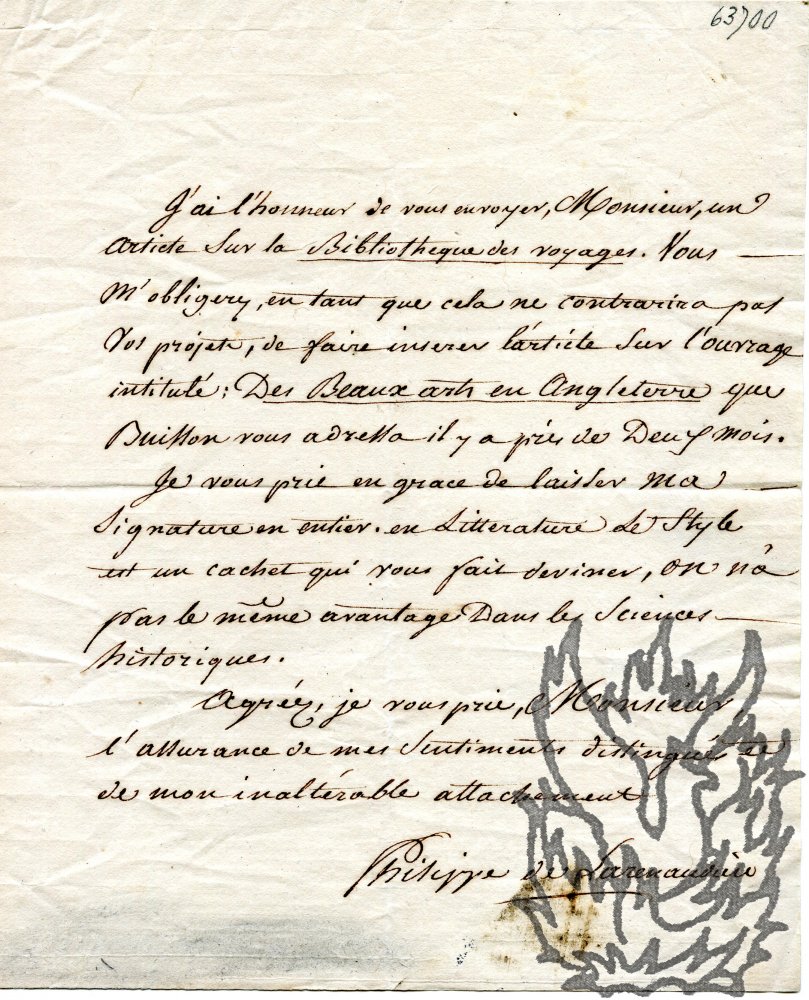 63)00
J'ai l'honneur de vous envoyer, Monsieur, un
article sur la Bibliotheque des voyages. Vous
m'obligerez, en tant que cela ne contrarira pas
vos projets, de faire inserer l'article sur l'ouvrage
intitulé: Des Beaux arts en Angleterre que
Buisson vous adressa il y a près de Deux mois.
Je vous prie en grace de laisser ma
signature en entier. en Litterature Le Style
est un cachet qui vous fait deviner, on n'a
pas le même avantage Dans les Sciences
historiques.
Agréez, je vous prie, Monsieur,
l'assurance de mes sentiments distingués et
de mon inaltérable attachement
Philippe de Larenaudière